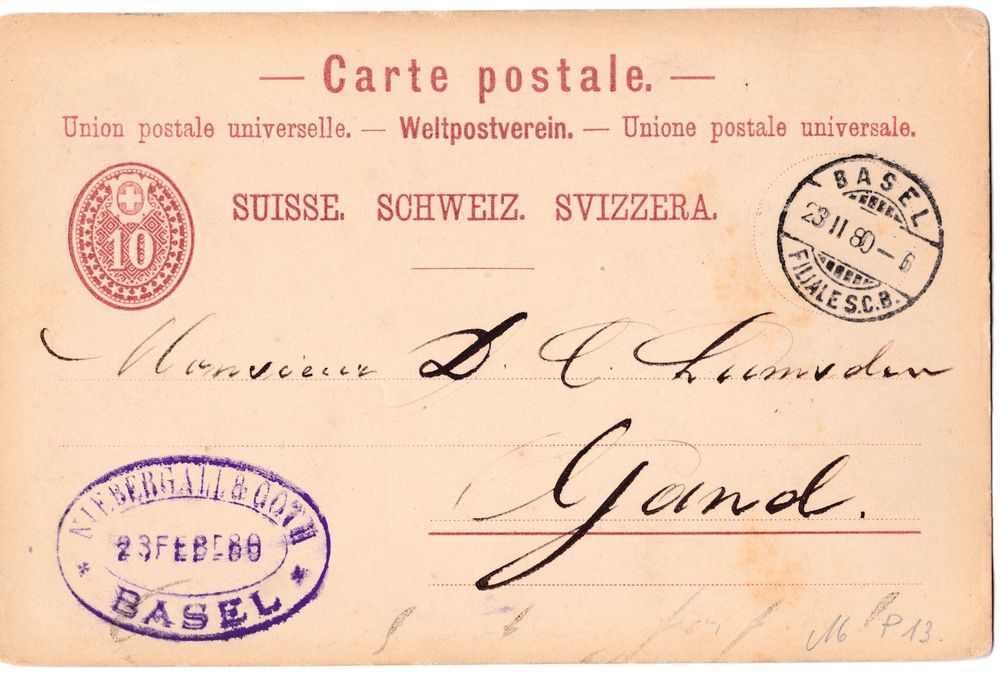 — Carte postale. —
Union postale universelle. — Weltpostverein. — Unione postale universale.
SUISSE. SCHWEIZ. SVIZZERA.
10
BASEL
23 II 80 – 6
FILIALE S.C.B.
Monsieur D. C. Lumsden
Gand.
NIEBERGALL & GOTH
23 FEBR 80
BASEL
M P 13.